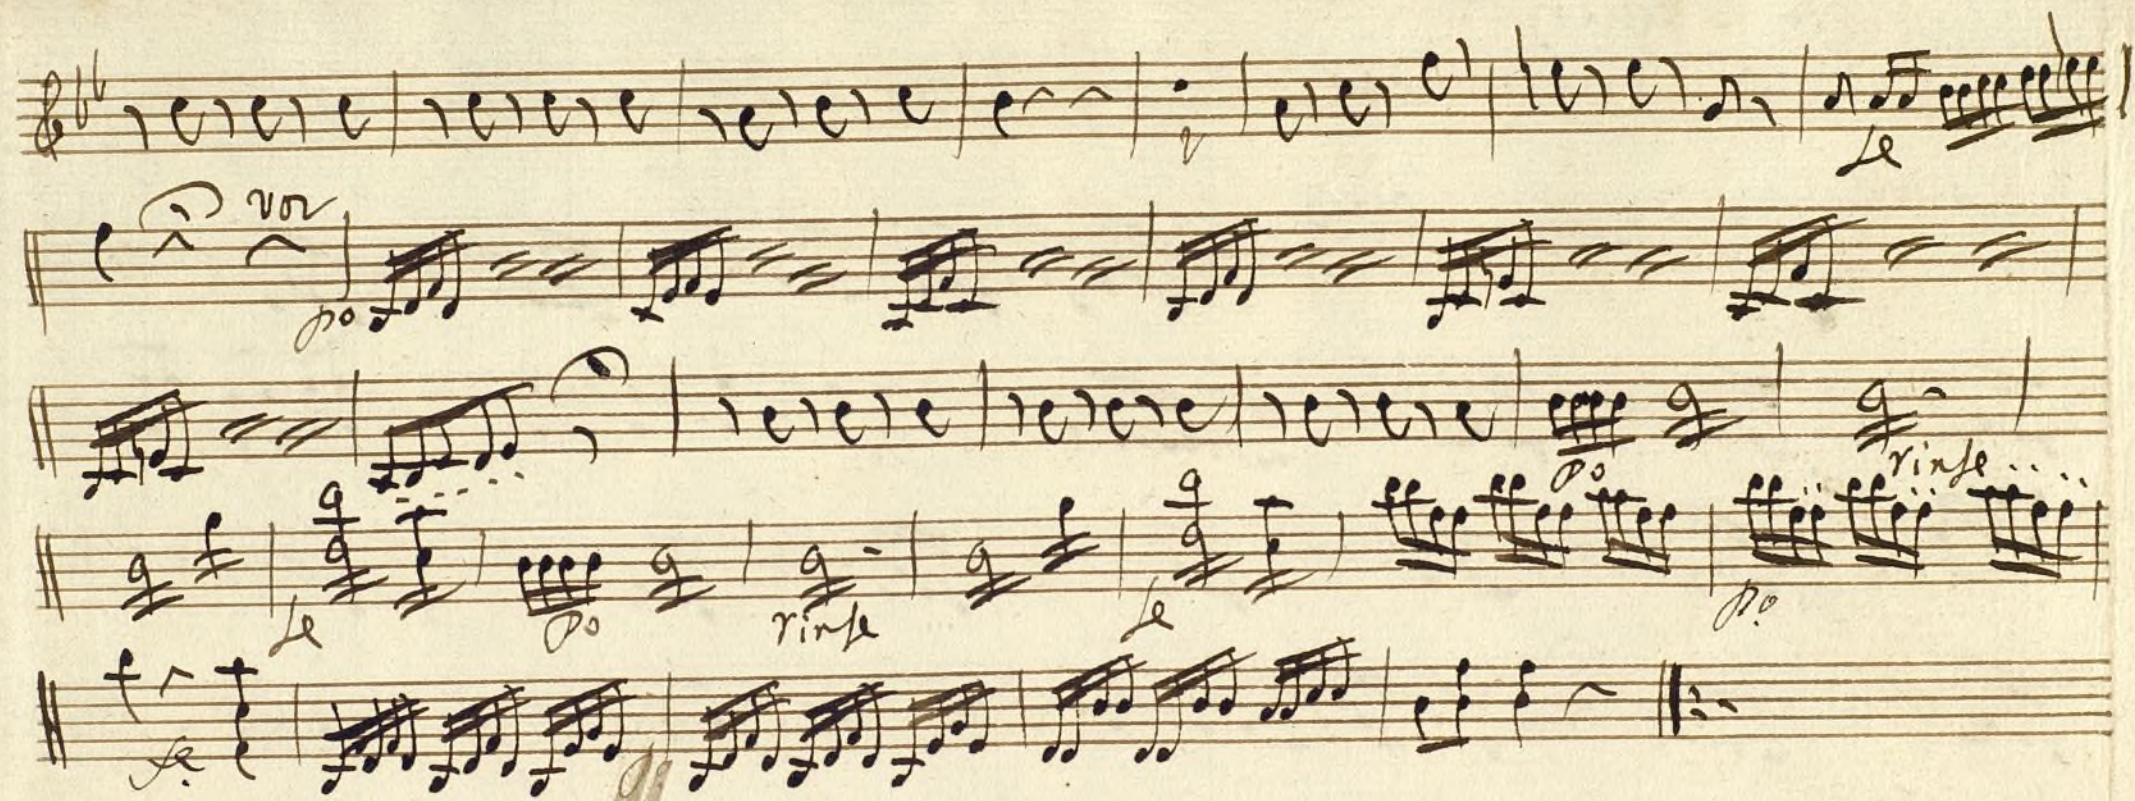 fe
vor
po
po rinfe
fe po rinfe fe po
fe